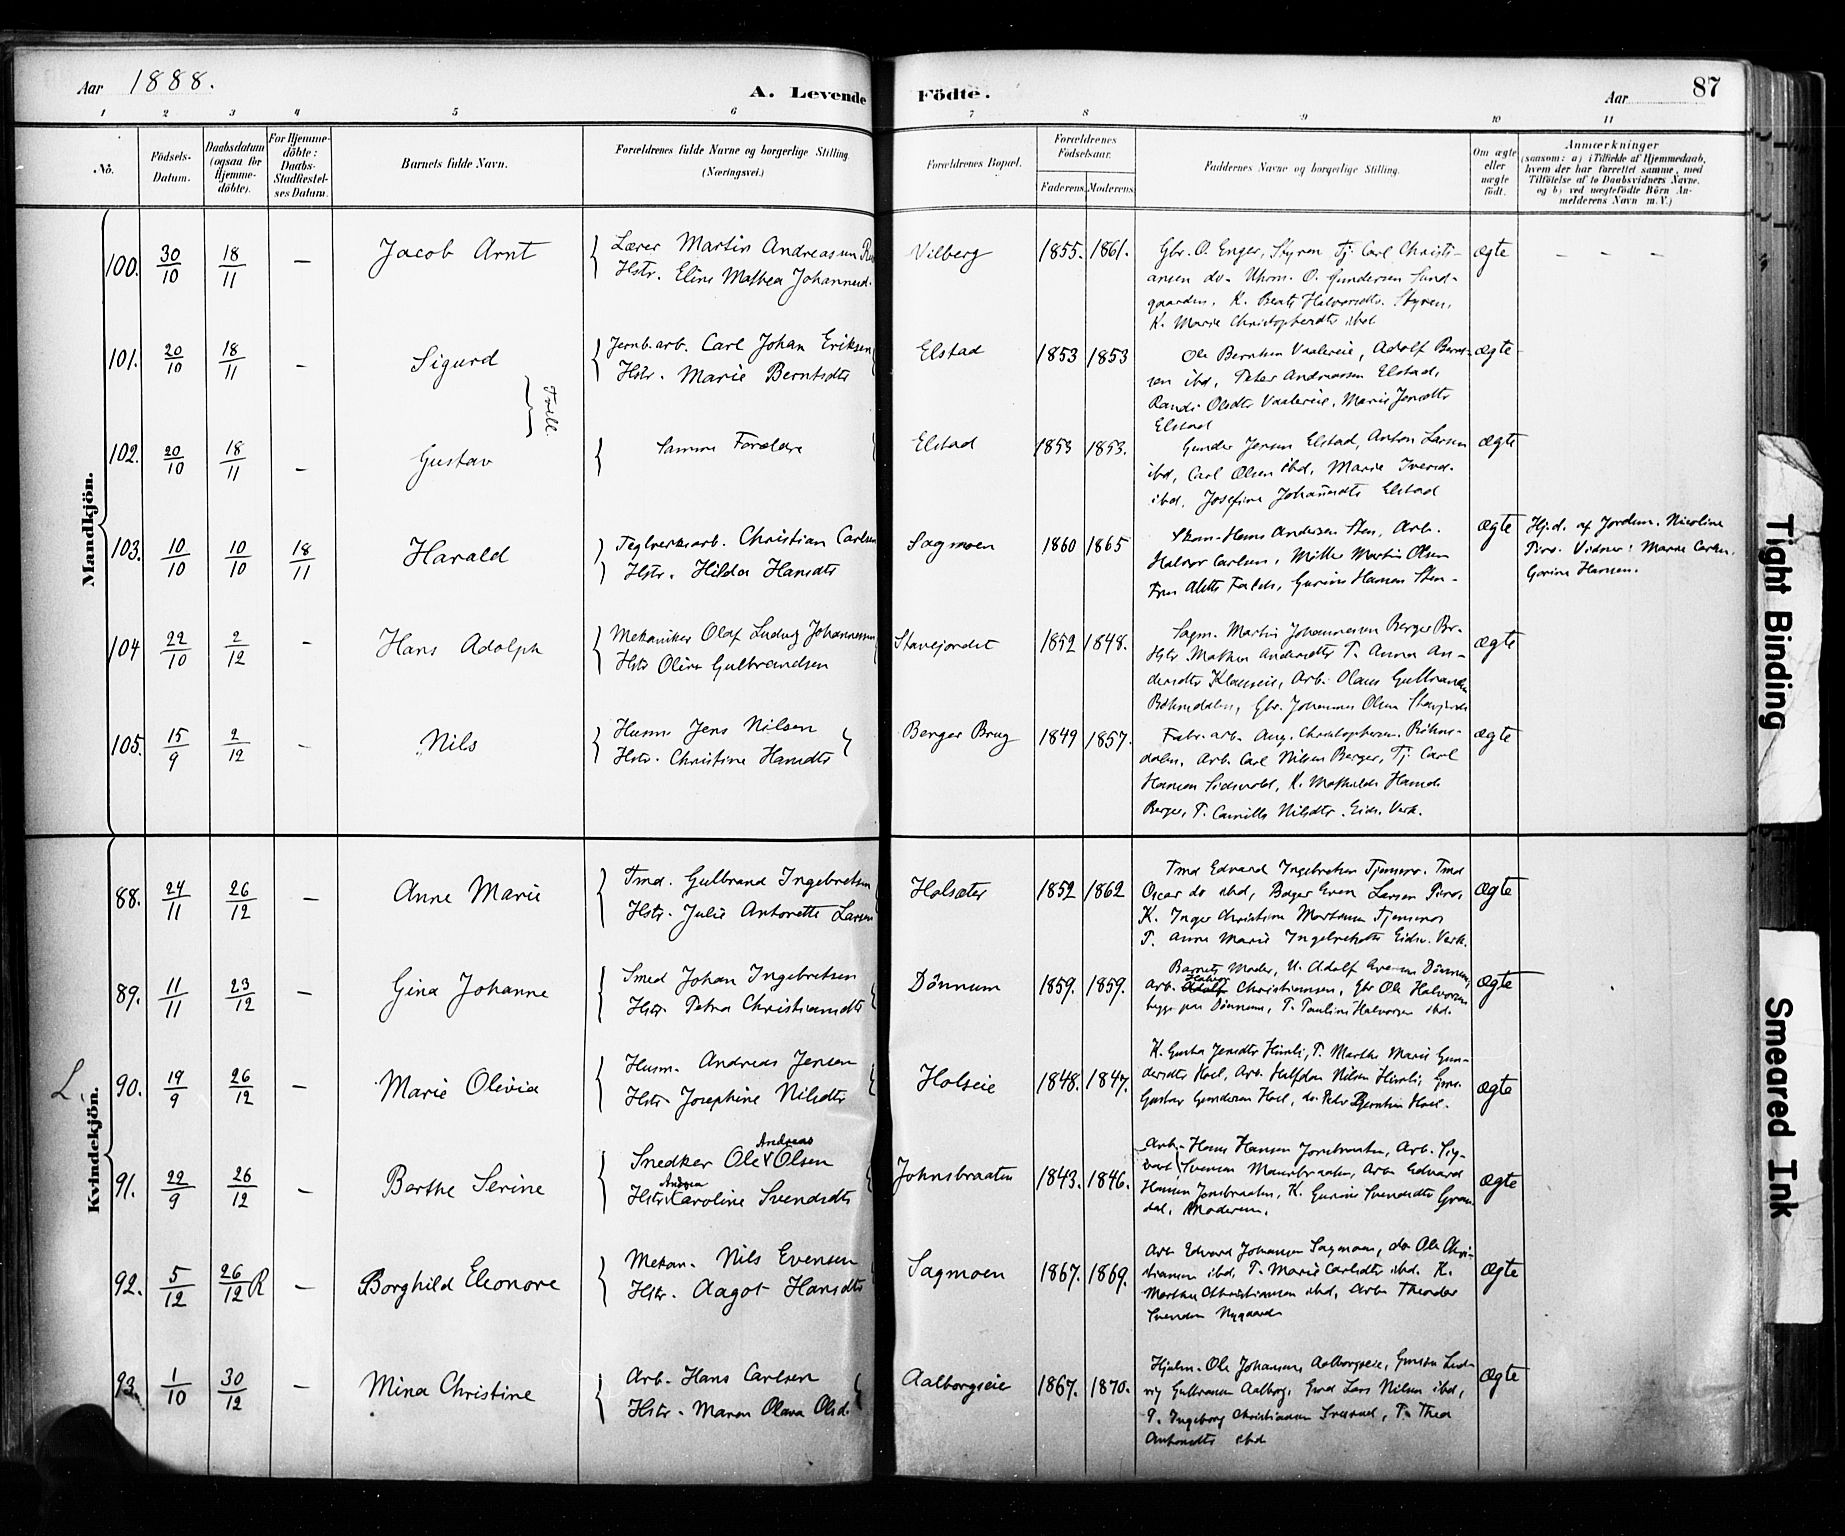 Aar 1888.
A. Levende Födte.
Aar
87
1 2 3 4 5 6 7 8 9 10 11
No.
Födsels-
Datum.
Daabsdatum
(ogsaa for
Hjemme-
döbte).
For Hjemme-
döbte:
Daabs-
Stadfæstel-
ses Datum.
Barnets fulde Navn.
Forældrenes fulde Navne og borgerlige Stilling
(Næringsvei.)
Forældrenes Bopæl.
Forældrenes
Födselsaar.
Faderens.
Moderens.
Faddernes Navne og borgerlige Stilling.
Om ægte
eller
uægte
født.
Anmærkninger
(saasom: a) i Tilfælde af Hjemmedaab,
hvem der har forrettet samme, med
Tilföielse af to Daabsvidners Navne,
og b) ved uægtefödte Börn An-
melderens Navn m. V.)
Mandkjön.
100. 30/10 18/11 — Jacob Arnt
Lærer Martin Andreassen
Hstr. Eline Mathea Johannesd.
Vilberg 1855. 1861.
Gbr. O. Enger, Styren Tj. Carl Christi-
ansen do. O. Gundersen Sund-
gaarden. K. Beate Halvorsdtr. Styren.
K. Marie Christophersdtr ibd.
ægte — — —
101. 20/10 18/11 — Sigurd
Jernb.arb. Carl Johan Eriksen
Hstr. Marie Berntsdtr
Elstad 1853 1853
Ole Berntsen Vaalereie, Adolf Bernt-
sen ibd, Peter Andreassen Elstad,
Randi Olsdtr Vaalereie, Marie Jensdtr
Elstad
ægte
Tvill.
102. 20/10 18/11 — Gustav
Samme Forældre
Elstad 1853 1853.
Gunder Jensen Elstad, Anton Larsen
ibd, Carl Olsen ibd, Marie Iversd.
ibd. Josefine Johannesdtr Elstad
ægte
103. 10/10 10/10 18/11 Harald
Teglverksarb. Christian Carlsen
Hstr. Hilda Hansdtr
Sagmoen 1860 1865
Skom. Hans Andersen Sten, Arb.
Halvor Carlsen, Martin Olsen
Gurine Hansen Sten
ægte
Hj.d. af Jordm. Nicoline
Vidner: Marie Carlsn.
Gorine Hansen.
104 22/10 2/12 — Hans Adolph
Mekaniker Olaf Ludvig Johannessen
Hstr Oline Gulbrandsen
Stavejordet 1852 1848.
Sagm. Martin Johannesen Berger Br.
Hstr. Mathea Andersdtr T. Anna An-
dersdtr Klasseie, Arb. Olaus Gulbrandsen
Böhnsdalen, Gbr. Johannes Olsen Stavejordet
ægte
105. 15/9 2/12 — Nils
Husm Jens Nilsen
Hstr. Christine Hansdtr
Berger Brug 1849 1857.
Fabr. arb. Aug. Christophersen Böhns-
dalen. Arb. Carl Nilsen Berger, Tj. Carl
Hansen Eidsvold, K. Mathilde Hansd.
Berger, T. Camilla Nilsdtr. Eids. Verk.
ægte
Kvindekjön.
88. 24/11 26/12 — Anne Marie
Tmd. Gulbrand Ingebretsen
Hstr. Julie Antonette Larsen
Holsæter 1852 1862
Tmd Edvard Ingebretsen Tjernsmo. Tmd
Oscar do ibd, Bager Even Larsen
K. Inger Christine Mortensen Tjernsmo
T. Anne Marie Ingebretsdtr Eidsv. Verk.
ægte
89. 11/11 23/12 — Gina Johanne
Smed Johan Ingebretsen
Hstr. Petra Christiansdtr
Dönnum 1859. 1859.
Barnets Moder, U. Adolf Dönnum,
Arb. Christiansen, Gbr Ole Halvorsen
Dönnum, T. Pauline Halvorsen ibd.
ægte
L.
90. 19/9 26/12 — Marie Olivia
Husm. Andreas Jensen
Hstr Josephine Nilsdtr
Holseie 1848. 1847.
K. Gusta Jensdtr T. Marthe Marie Gun-
dersdtr Hoel, Arb. Halfdan Nilsen
Gustav Gundersen Hoel, do. Peder Berntsen Hoel.
ægte
91. 22/9 26/12 — Berthe Serine
Snedker Ole Andreas Olsen
Hstr Andrea Karoline Svendsdtr
Johnsbraaten 1843. 1846.
Arb. Hans Hansen Jonsbraaten, Arb. Sig-
vart Svensen Arb Edvard
Hansen Jonsbraaten, K. Gurine Svendsdtr
dal, Moderen.
ægte
92. 5/12 26/12 R — Borghild Eleonore
Mekan. Nils Evensen
Hstr. Aagot Hansdtr
Sagmoen 1867. 1869.
Arb Edvard Johansen Sagmoen, do Ole Chri-
stiansen ibd, T. Marie Carlsdtr ibd. K.
Marthe Christiansen ibd, Arb Theodor
Svendsen Nygaard
ægte
93. 1/10 30/12 — Mina Christine
Arb. Hans Carlsen
Hstr. Maren Olava Olsd.
Aalborgseie 1867. 1870.
Ole Johansen Aalborgseie, Lud-
vig Gulbransen Aalborg, Lars Nilsen ibd,
P. Ingeborg Christiansen T. Thea
Antonsdtr ibd
ægte
Tight Binding
Smeared Ink